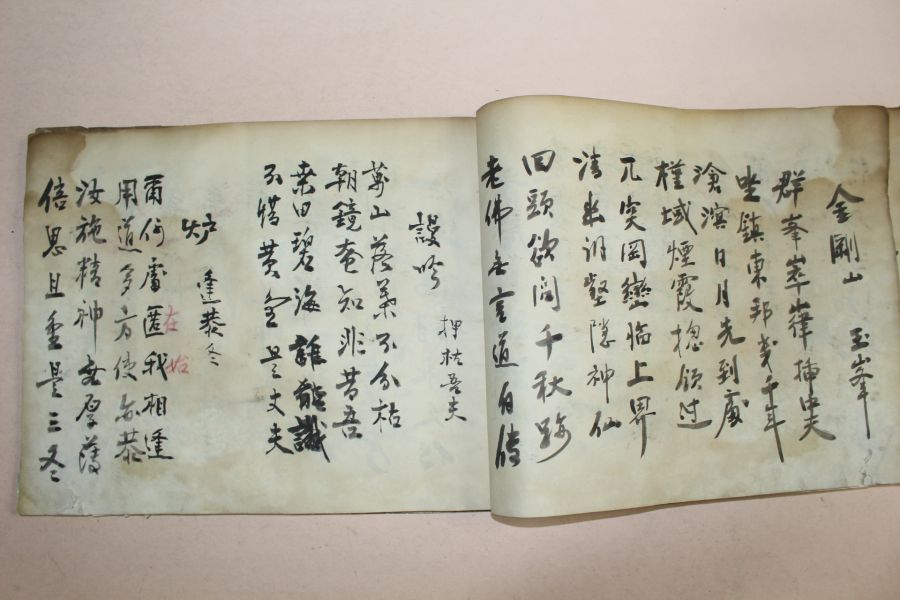 金剛山 玉峯
群峯崒嵂揷中天
坐鎭東邦幾千年
滄溟日月先到處
槿域煙霞摠領辺
兀突岡巒臨上界
淸幽洞壑隱神仙
回頭欲問千秋跡
老佛無言道自傳
謾吟
押枯吾夫
萬山落葉不分枯
朝鏡奄知非昔吾
桑田碧海誰能識
不惜黃金是丈夫
炉 逢恭冬
爾何處匿我相逢
在始
用道多方使亦恭
汝施精神無厚薄
倍思且重是三冬